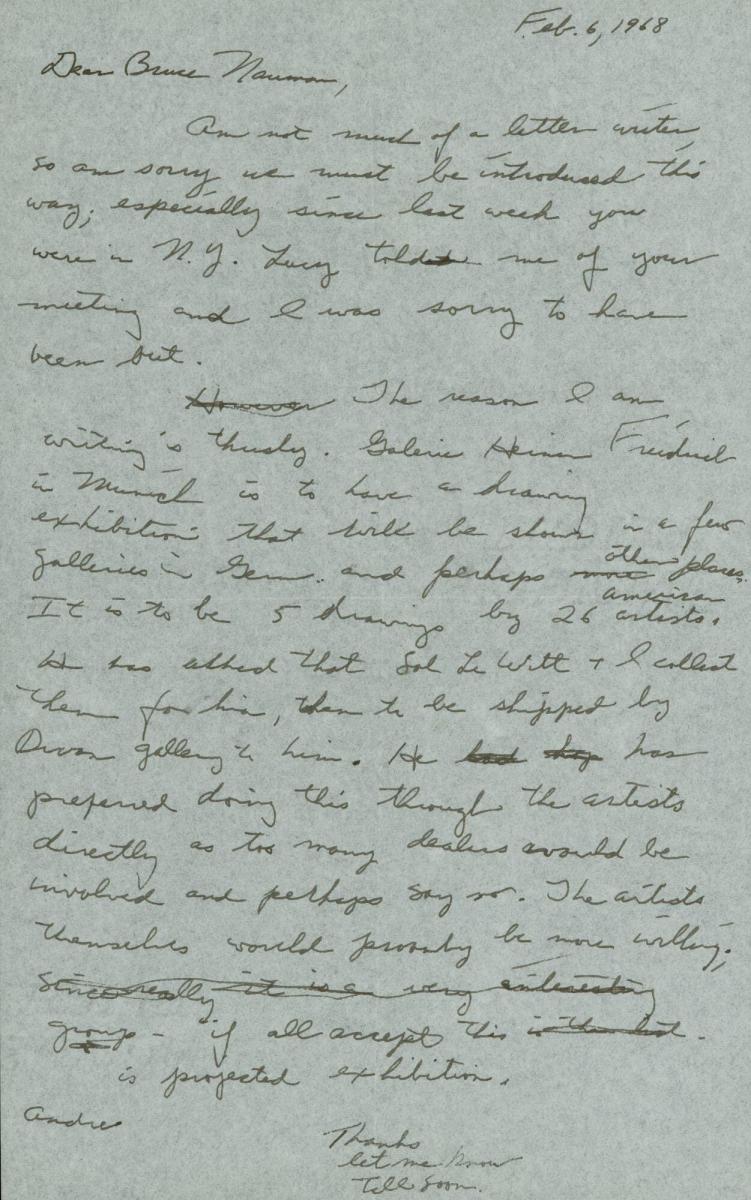 Feb. 6, 1968
Dear Bruce Nauman,
Am not much of a letter writer,
so am sorry we must be introduced this
way; especially since last week you
were in N.Y. Lucy told me of your
meeting and I was sorry to have
been out.
However The reason I am
writing is thusly. Galerie Heiner Friedrich
in Munich is to have a drawing
exhibition that will be shown in a few
galleries in Germ. and perhaps more other places.
It is to be 5 drawings by 26 american artists.
He has asked that Sol LeWitt + I collect
them for him, then to be shipped by
Dwan gallery to him. He had has
preferred doing this through the artists
directly as too many dealers would be
involved and perhaps say no. The artists
themselves would probably be more willing;
Since really it is a very interesting
group - if all accept this is the list.
is projected exhibition.
Andre
Thanks
let me know
soon.